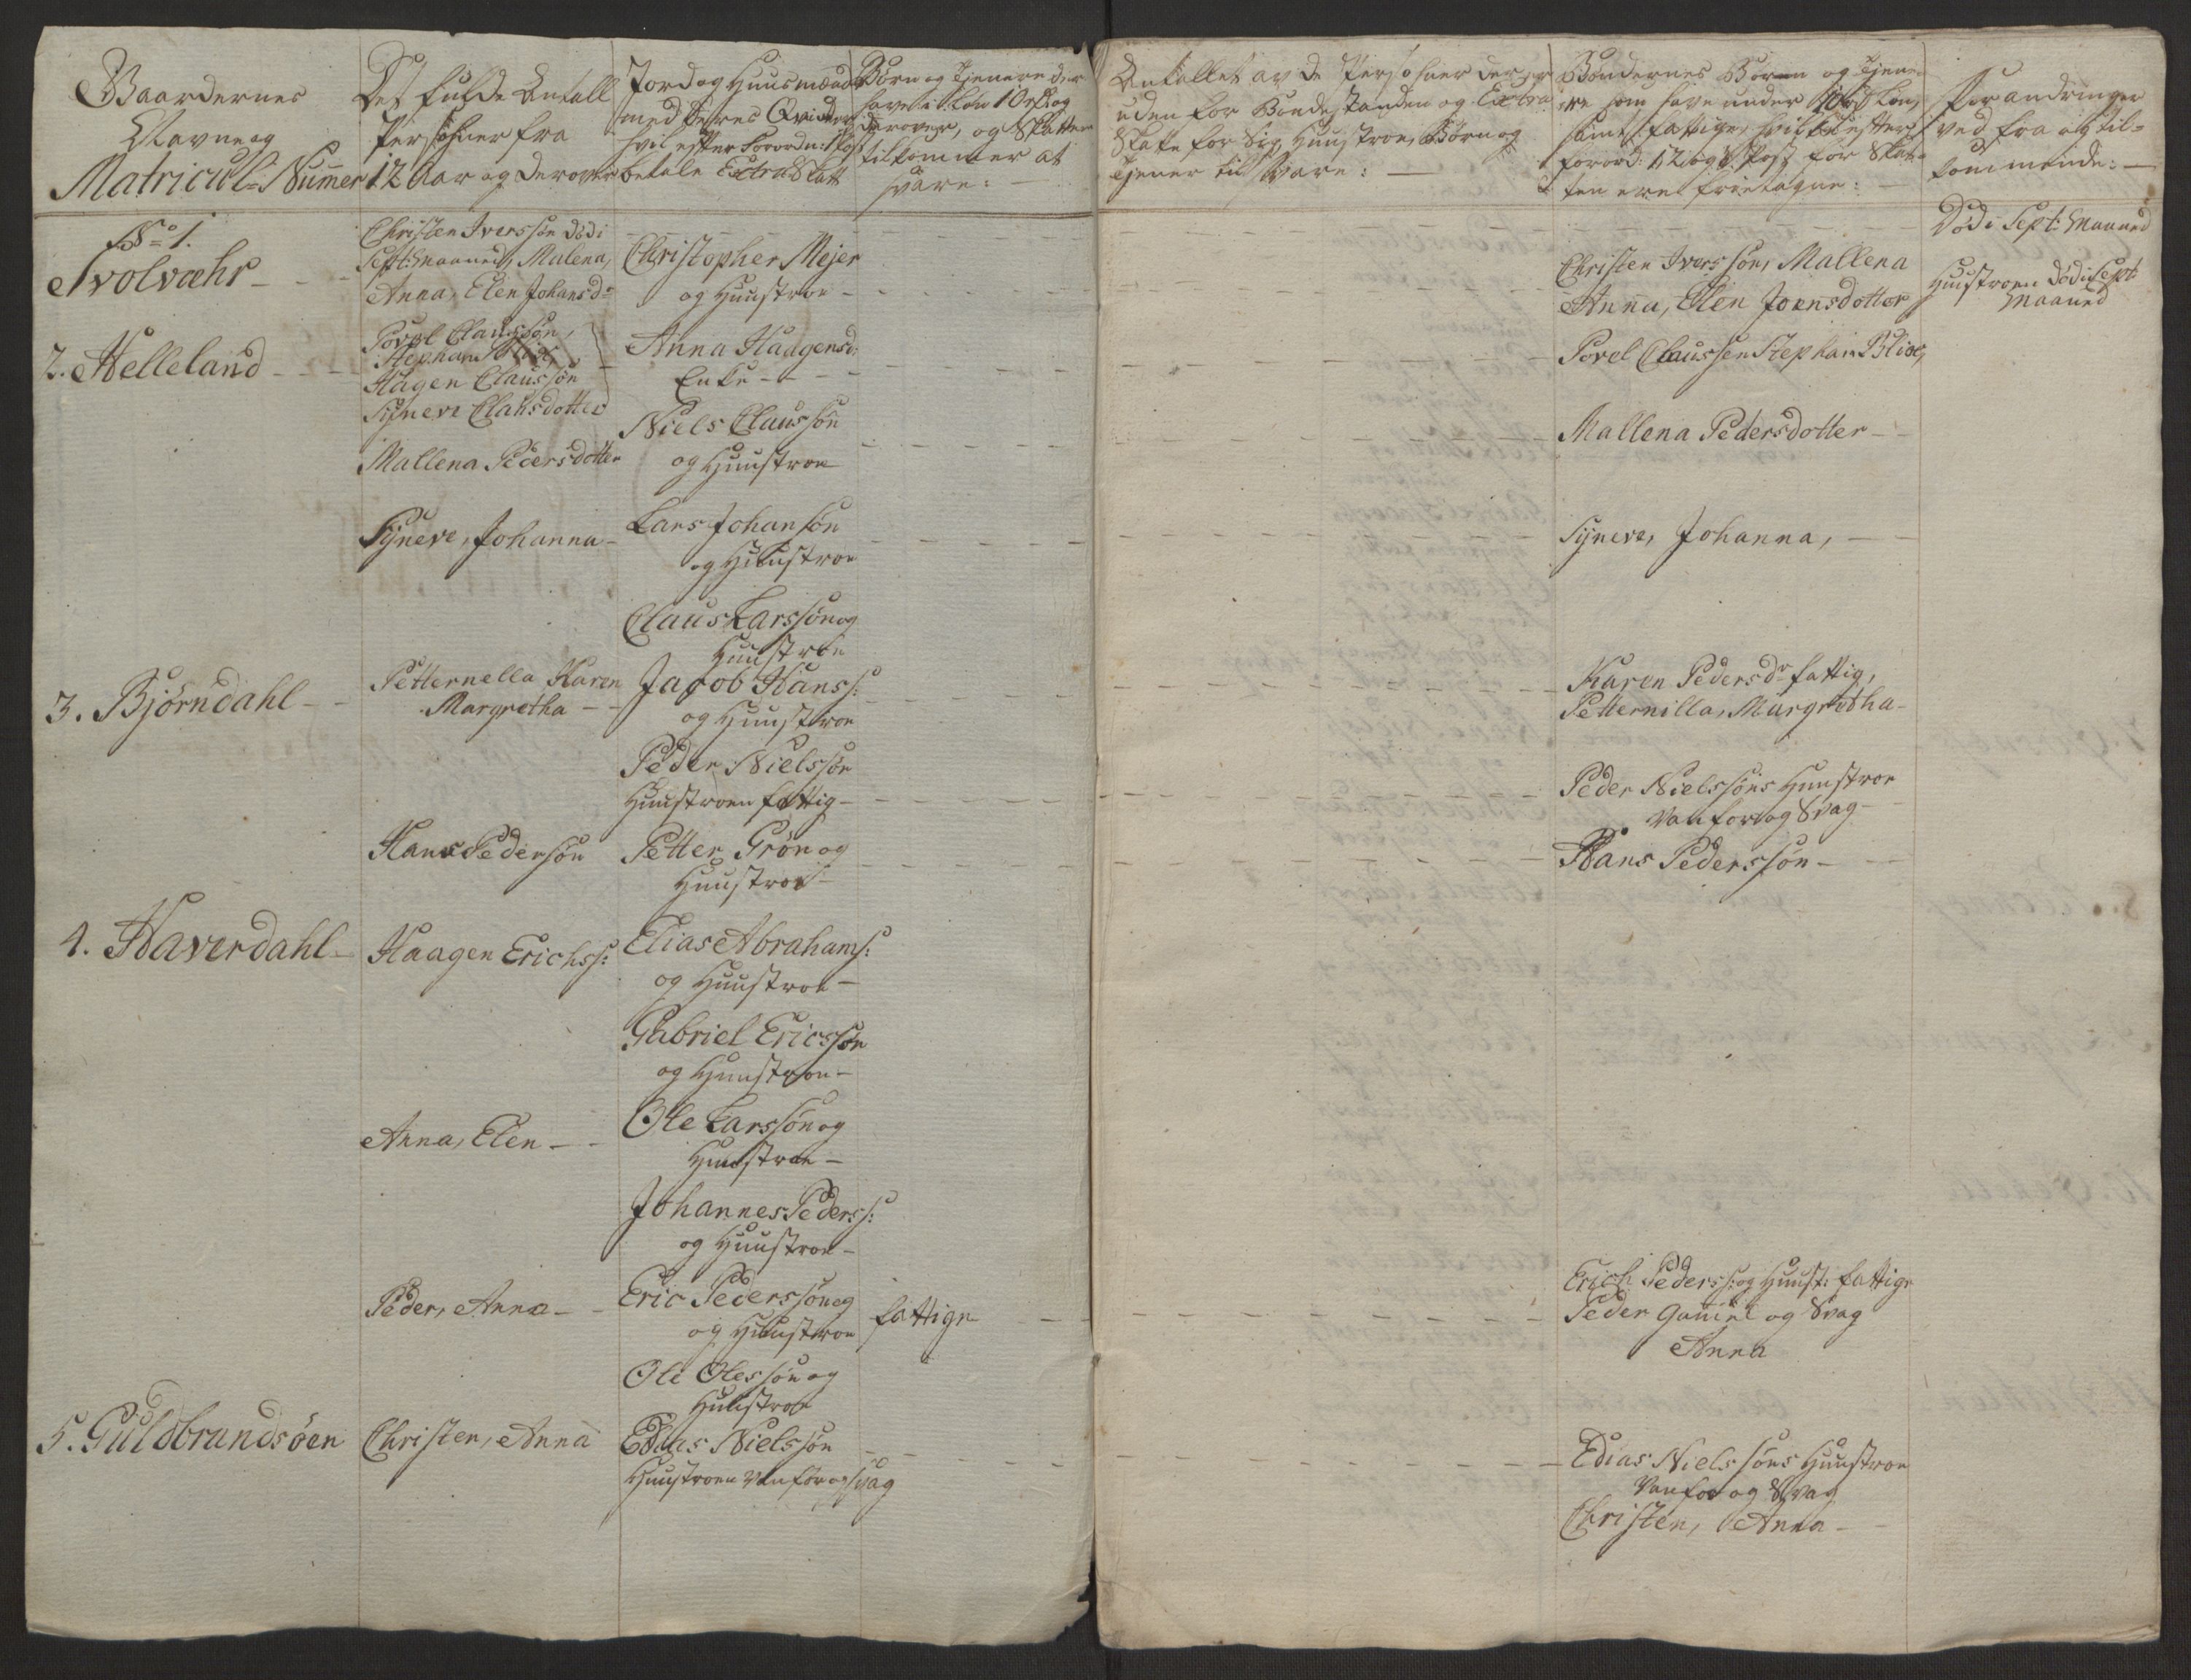 Gaardernes
Navne og
Matricul: Numer
Det fulde Antall
Persohner fra
12 Aar og derover
Jord og Huusmænd
med deres Qvinder
hvil efter Forordn: Post
betale Extra Skatt
Børn og Tjenere der
have i Løn 10 rd og
derover, og Skatten
tilkommer at
svare:
Antallet av de Persohner der er
uden for Bondestanden og Extra
Skatt for Sig Huustroe, Børn og
Tjener til Svare:
Bøndernes Børen og Tjene-
re som have under 10 rd Løn,
samt fattige, hvilke efter
forord: 12 og Post for Skat-
ten ere frietagne:
Forandringer
ved fra og til-
kommende:
No 1.
Svolvæhr
Christen Iverssøn död i
Sept: Maaned, Malena,
Anna, Elen Johansdr
Christopher Mejer
og Huustroe
Christen Iverssøn, Mallena
Anna, Elen Joensdotter
Död i Sept: Maaned
Huustroen död i Sept
Maaned
2. Helleland
Povel Claussøn,
Stephan Blix,
Hagen Claussøn
Sÿnere Clausdotter
Anna Haagensd:
Enke
Povel Claussen Stephan Blix,
Mallena Pedersdotter
Niels Claussøn
og Huustroe
Mallena Pedersdotter
Sÿnere, Johanna
Lars Johansøn
og Huustroe
Sÿnere, Johanna,
Claus Larssøn og
Huustroe
3. Bjørndahl
Petternella Karen
Margretha
Jacob Hanss:
og Huustroe
Karen Pedersdr fattig,
Petternilla, Margretha
Peder Nielssøn
Huustroen fattig
Peder Nielssøns Huustroe
Vanfør og Svag
Hans Pedersøn
Petter Grøn og
Huustroe
Hans Pederssøn
4. Haverdahl
Haagen Erichss:
Elias Abrahams:
og Huustroe
Gabriel Ericssøn
og Huustroe
Anna, Elen
Ole Larssøn og
Huustroe
Johannes Pederss:
og Huustroe
Peder, Anna
Eric Pederssøn og
og Huustroe
fattige
Erich Pederss: og Huust: fattige
Peder Gamel og Svag
Anna
Ole Olessøn og
Huustroe
5. Guldbrandsøen
Christen, Anna
Edias Nielssøn
Huustroen Vanfør og svag
Edias Nielssøns Huustroe
Vanfør og Svag
Christen, Anna